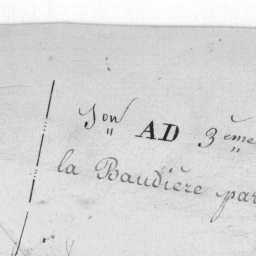 Son AD 3ème
la Baudière par